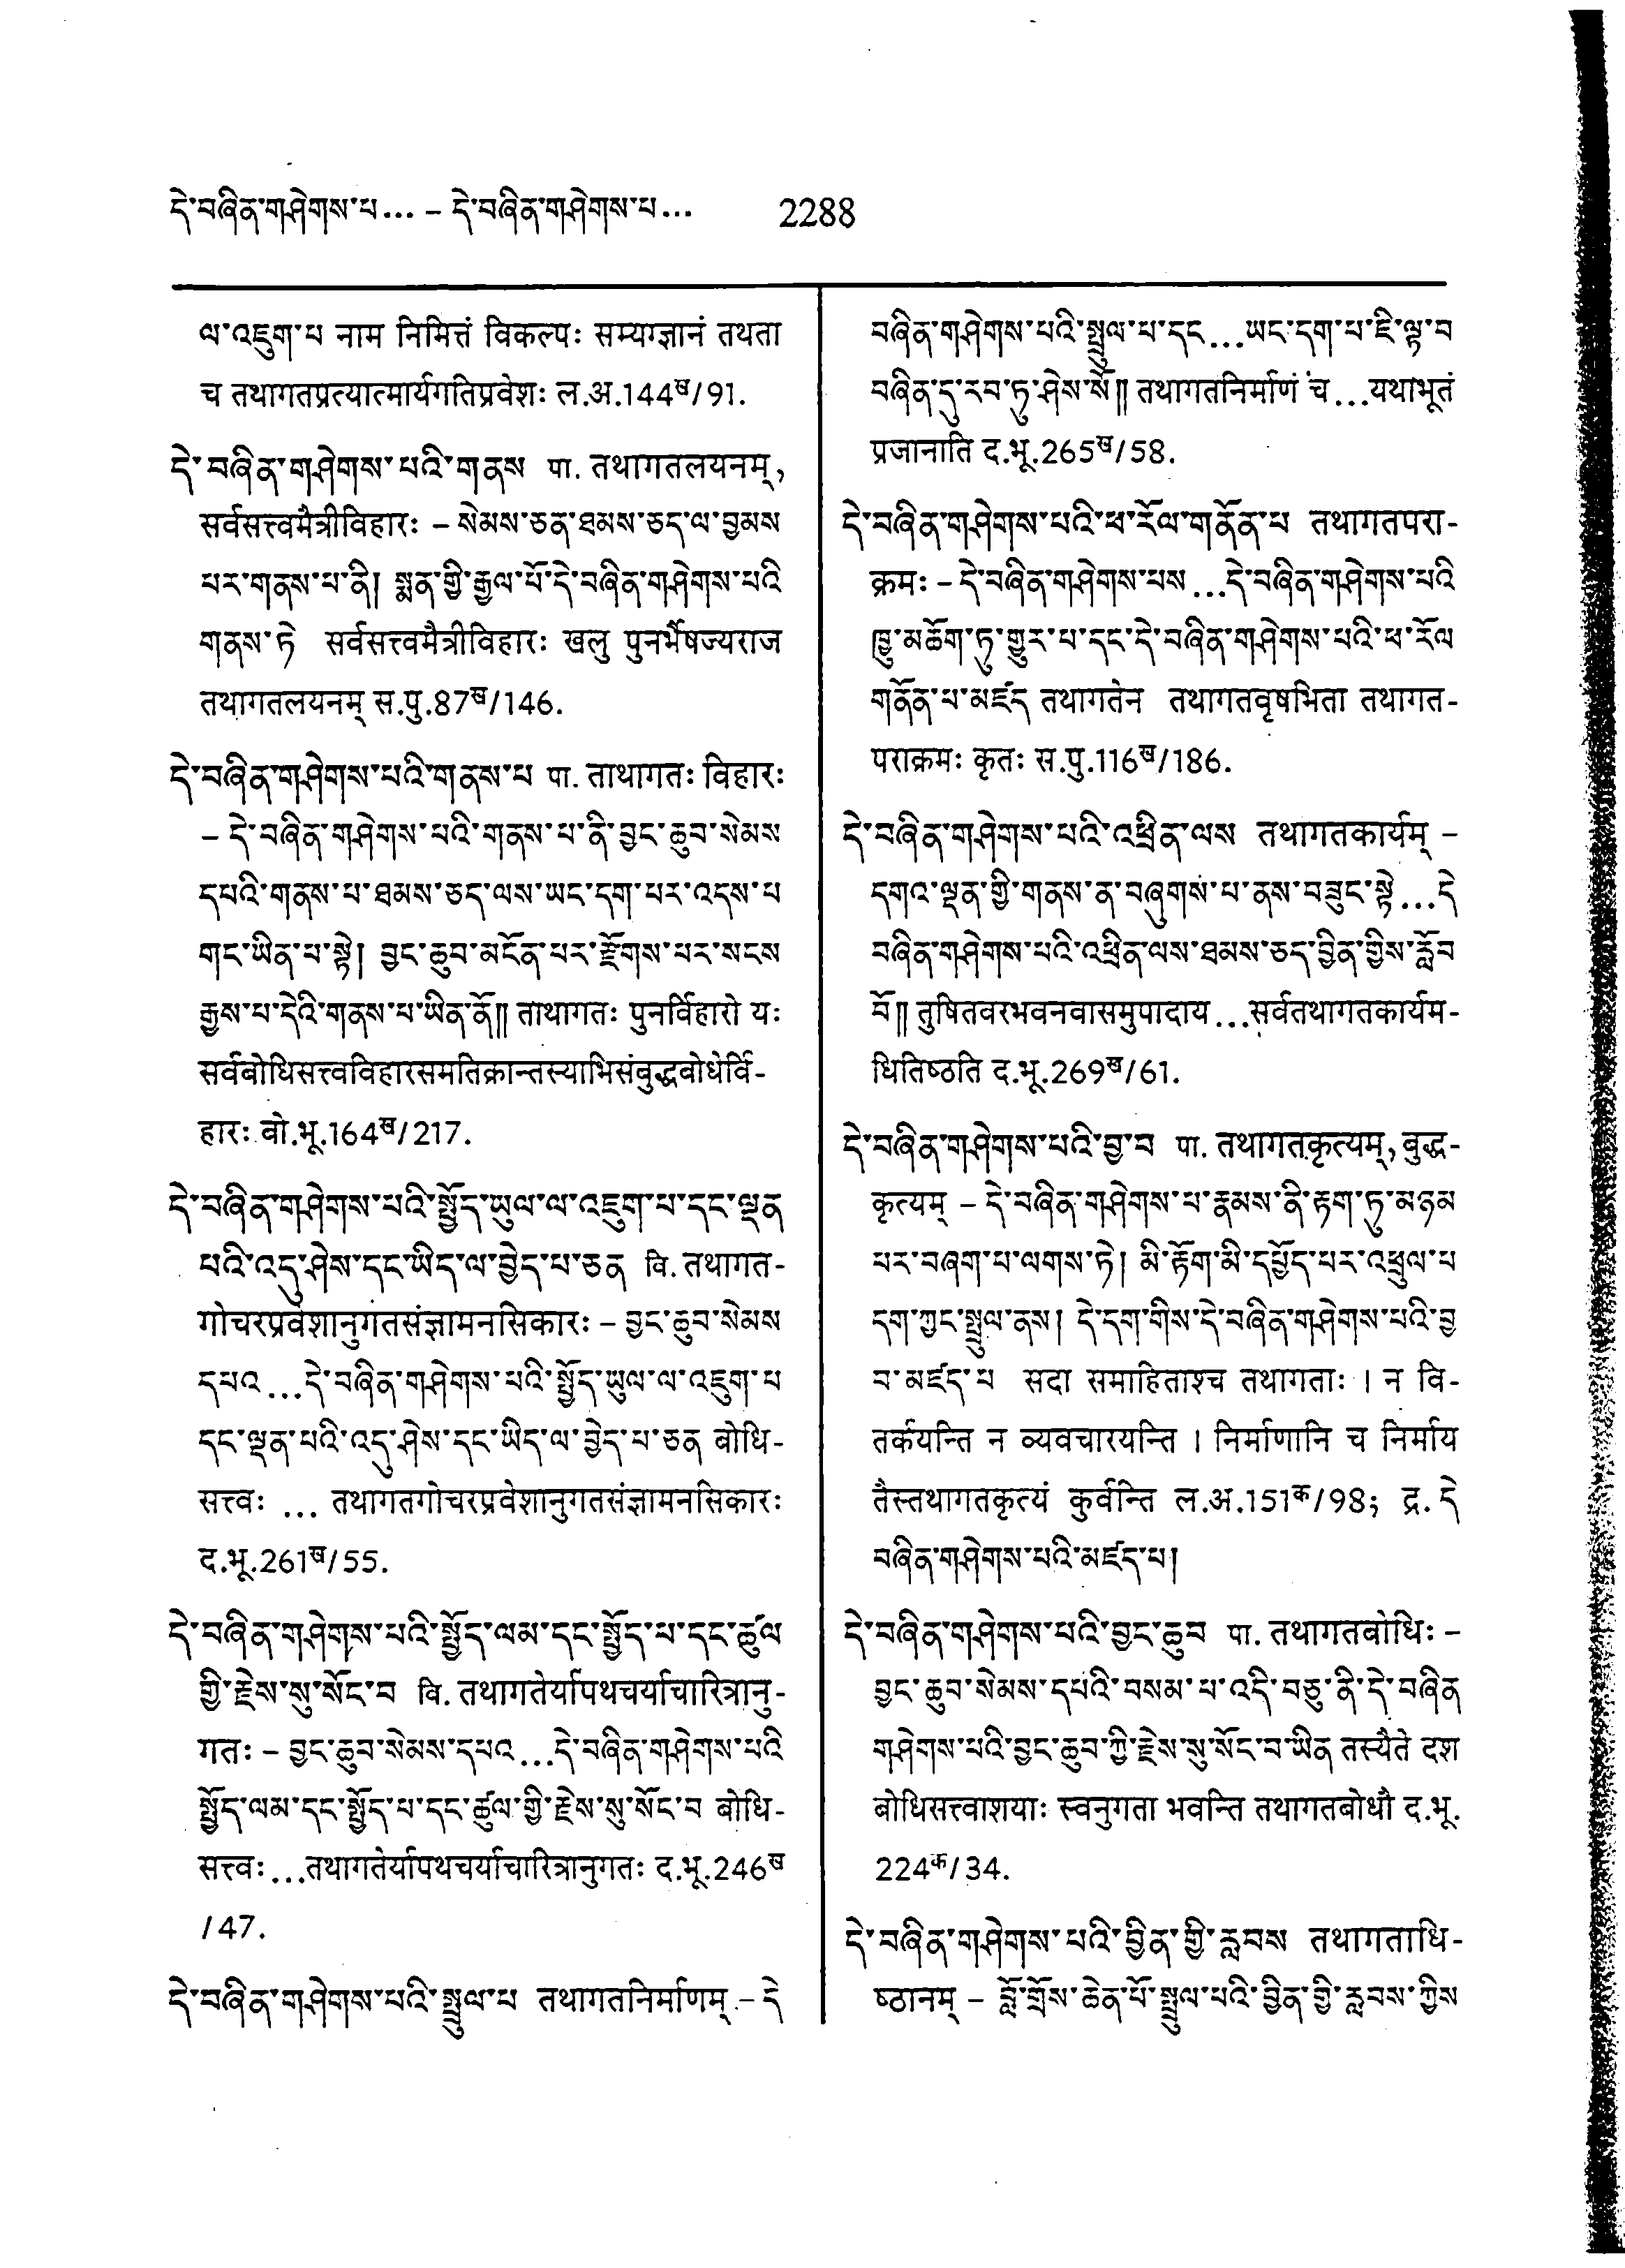 དེ་བཞིན་གཤེགས་པ... – དེ་བཞིན་གཤེགས་པ...
2288
ལ་འཇུག་པ नाम निमित्तं विकल्पः सम्यग्ज्ञानं तथता
च तथागतप्रत्यात्मार्यगतिप्रवेशः ल.अ.144ख/91.
དེ་བཞིན་གཤེགས་པའི་གནས पा. तथागतलयनम्,
सर्वसत्त्वमैत्रीविहारः – སེམས་ཅན་ཐམས་ཅད་ལ་བྱམས
པར་གནས་པ་ནི། སྨན་གྱི་རྒྱལ་པོ་དེ་བཞིན་གཤེགས་པའི
གནས་ཏེ सर्वसत्त्वमैत्रीविहारः खलु पुनर्भैषज्यराज
तथागतलयनम् स.पु.87ख/146.
དེ་བཞིན་གཤེགས་པའི་གནས་པ पा. ताथागतः विहारः
– དེ་བཞིན་གཤེགས་པའི་གནས་པ་ནི་བྱང་ཆུབ་སེམས
དཔའི་གནས་པ་ཐམས་ཅད་ལས་ཡང་དག་པར་འདས་པ
གང་ཡིན་པ་སྟེ། བྱང་ཆུབ་མངོན་པར་རྫོགས་པར་སངས
རྒྱས་པ་དེའི་གནས་པ་ཡིན་ནོ།། ताथागतः पुनर्विहारो यः
सर्वबोधिसत्त्वविहारसमतिक्रान्तस्याभिसंबुद्धबोधेर्वि-
हारः बो.भू.164ख/217.
དེ་བཞིན་གཤེགས་པའི་སྤྱོད་ཡུལ་ལ་འཇུག་པ་དང་ལྡན
པའི་འདུ་ཤེས་དང་ཡིད་ལ་བྱེད་པ་ཅན वि. तथागत-
गोचरप्रवेशानुगतसंज्ञामनसिकारः – བྱང་ཆུབ་སེམས
དཔའ...དེ་བཞིན་གཤེགས་པའི་སྤྱོད་ཡུལ་ལ་འཇུག་པ
དང་ལྡན་པའི་འདུ་ཤེས་དང་ཡིད་ལ་བྱེད་པ་ཅན बोधि-
सत्त्वः ... तथागतगोचरप्रवेशानुगतसंज्ञामनसिकारः
द.भू.261ख/55.
དེ་བཞིན་གཤེགས་པའི་སྤྱོད་ལམ་དང་སྤྱོད་པ་དང་ཚུལ
གྱི་རྗེས་སུ་སོང་བ वि. तथागतेर्यापथचर्याचारित्रानु-
गतः – བྱང་ཆུབ་སེམས་དཔའ...དེ་བཞིན་གཤེགས་པའི
སྤྱོད་ལམ་དང་སྤྱོད་པ་དང་ཚུལ་གྱི་རྗེས་སུ་སོང་བ बोधि-
सत्त्वः...तथागतेर्यापथचर्याचारित्रानुगतः द.भू.246ख
/47.
དེ་བཞིན་གཤེགས་པའི་སྤྲུལ་པ तथागतनिर्माणम् – དེ
བཞིན་གཤེགས་པའི་སྤྲུལ་པ་དང...ཡང་དག་པ་ཇི་ལྟ་བ
བཞིན་དུ་རབ་ཏུ་ཤེས་སོ།། तथागतनिर्माणं च...यथाभूतं
प्रजानाति द.भू.265ख/58.
དེ་བཞིན་གཤེགས་པའི་ཕ་རོལ་གནོན་པ तथागतपरा-
क्रमः – དེ་བཞིན་གཤེགས་པས...དེ་བཞིན་གཤེགས་པའི
ཁྱུ་མཆོག་ཏུ་གྱུར་པ་དང་དེ་བཞིན་གཤེགས་པའི་ཕ་རོལ
གནོན་པ་མཛད तथागतेन तथागतवृषभिता तथागत-
पराक्रमः कृतः स.पु.116ख/186.
དེ་བཞིན་གཤེགས་པའི་འཕྲིན་ལས तथागतकार्यम् –
དགའ་ལྡན་གྱི་གནས་ན་བཞུགས་པ་ནས་བཟུང་སྟེ...དེ
བཞིན་གཤེགས་པའི་འཕྲིན་ལས་ཐམས་ཅད་བྱིན་གྱིས་རློབ
བོ།། तुषितवरभवनवासमुपादाय...सर्वतथागतकार्यम-
धितिष्ठति द.भू.269ख/61.
དེ་བཞིན་གཤེགས་པའི་བྱ་བ पा. तथागतकृत्यम्, बुद्ध-
कृत्यम् – དེ་བཞིན་གཤེགས་པ་རྣམས་ནི་རྟག་ཏུ་མཉམ
པར་བཞག་པ་ལགས་ཏེ། མི་རྟོག་མི་དཔྱོད་པར་འཕྲུལ་པ
དག་ཀྱང་སྤྲུལ་ནས། དེ་དག་གིས་དེ་བཞིན་གཤེགས་པའི་བྱ
བ་མཛད་པ सदा समाहिताश्च तथागताः । न वि-
तर्कयन्ति न व्यवचारयन्ति । निर्माणानि च निर्माय
तैस्तथागतकृत्यं कुर्वन्ति ल.अ.151क/98; द्र. དེ
བཞིན་གཤེགས་པའི་མཛད་པ།
དེ་བཞིན་གཤེགས་པའི་བྱང་ཆུབ पा. तथागतबोधिः –
བྱང་ཆུབ་སེམས་དཔའི་བསམ་པ་འདི་བཅུ་ནི་དེ་བཞིན
གཤེགས་པའི་བྱང་ཆུབ་ཀྱི་རྗེས་སུ་སོང་བ་ཡིན तस्यैते दश
बोधिसत्त्वाशयाः स्वनुगता भवन्ति तथागतबोधौ द.भू.
224क/34.
དེ་བཞིན་གཤེགས་པའི་བྱིན་གྱི་རླབས तथागताधि-
ष्ठानम् – བློ་གྲོས་ཆེན་པོ་སྤྲུལ་པའི་བྱིན་གྱི་རླབས་ཀྱིས